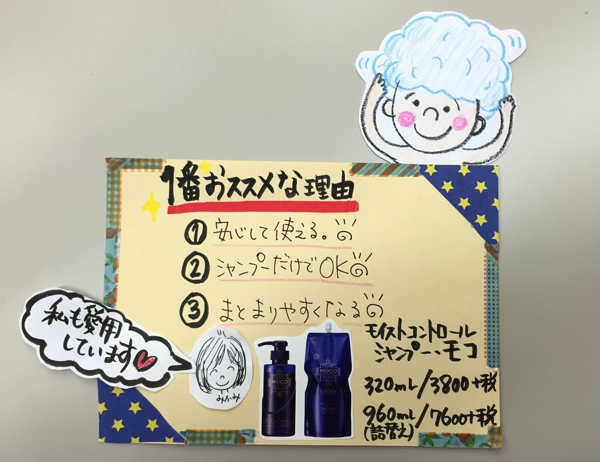 1番おススメな理由
① 安心して使える。
② シャンプーだけでOK
③ まとまりやすくなる
私も愛用
しています
みかみ
MOCO
MOCO
モイストコントロール
シャンプー・モコ
320mL/3800+税
960mL/7600+税
(詰替え)